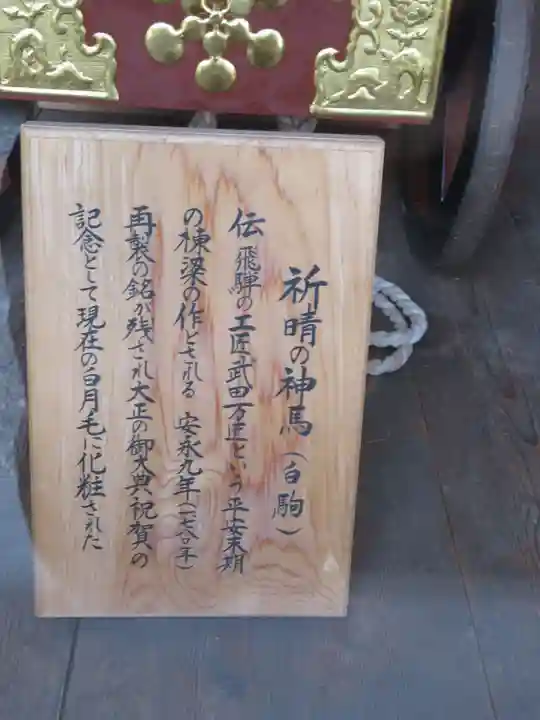 祈晴の神馬（白駒）
伝 飛騨の工匠武田万匠という平安末期
の棟梁の作とされる 安永九年（一七八〇年）
再製の銘が残され大正の御大典祝賀の
記念として現在の白月毛に化粧された